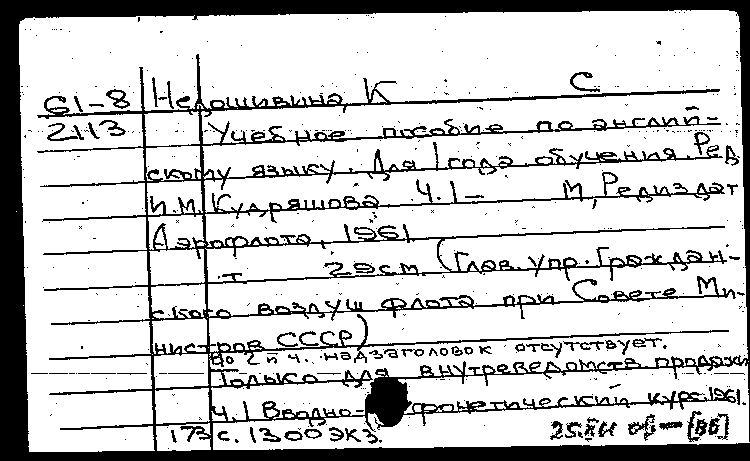 61-8 Недошивина, К С
2113 Учебное пособие по англий-
скому языку. Для 1 года обучения. Ред
И.М. Кудряшова Ч.1- М, Редиздат
Аэрофлота, 1961
т 29см. (Глав. упр. Граждан-
ского воздуш флота при Совете Ми-
нистров СССР)
Во 2 и ч. надзаголовок отсутствует.
Только для внутреведомств продажи
Ч.1 Вводно-фонетический курс. 1961.
173 с. 1300 экз.
[ВБ]